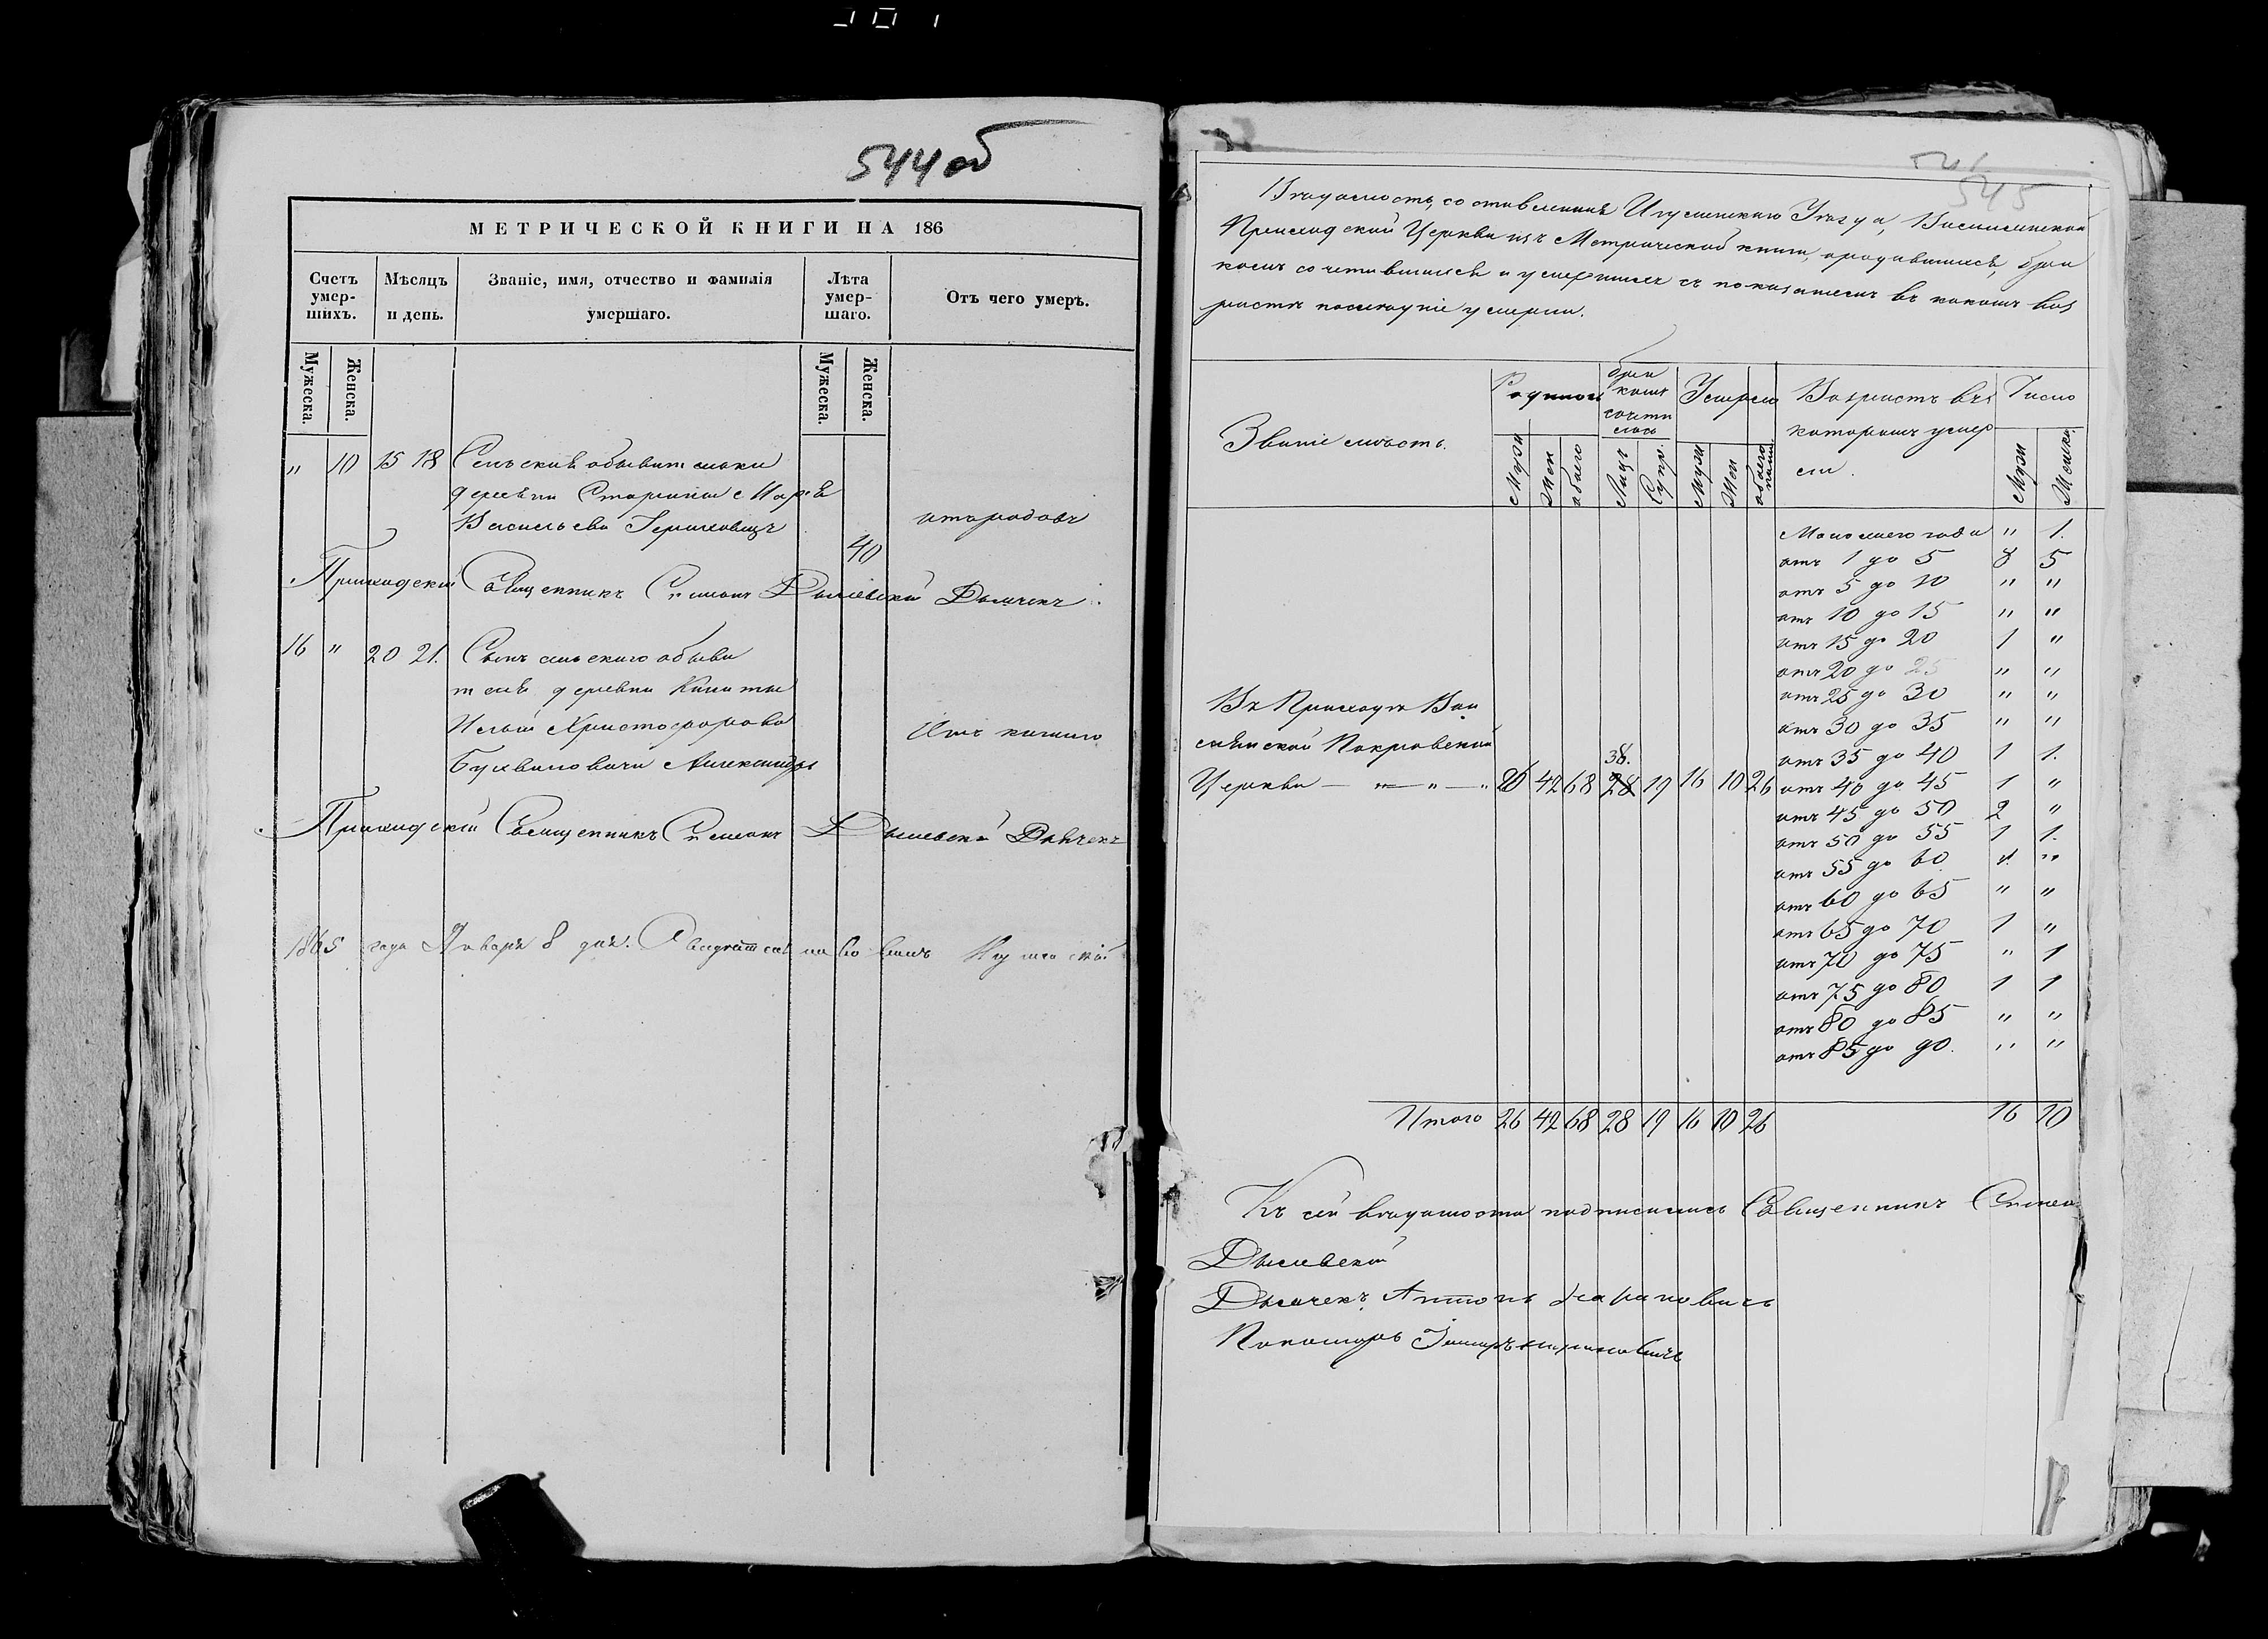 544об
МЕТРИЧЕСКОЙ КНИГИ НА 186
Счетъ умер-шихъ.
Мѣсяцъ и день.
Званіе, имя, отчество и фамилія умершаго.
Лѣта умер-шаго.
Отъ чего умеръ.
Мужеска.
Женска.
Мужеска.
Женска.
" 10 15 18 Сельская обывателька
деревни
Васильева
отъ родовъ
40
Приходскій Священникъ Симонъ Дылевскій Дьячекъ
16 " 20 21. Сынъ сельскаго обыва
теля деревни
Христофорова
Александръ
Отъ кашлю
Приходскій Священникъ Симонъ Дылевскій Дьячекъ
1865 года Января 8 дня. Свидѣтельствовалъ
545
Вѣдомость, составленная Игуменскаго Уѣзда,
Приходской Церкви изъ Метрической книги, о родившихся, бра
комъ сочетавшихся и умершихъ съ показаніемъ въ какомъ воз
растѣ послѣдніе умерли.
Званіе мѣстъ.
Родилось
бра комъ сочета лось
Умерло
Возрастъ въ
которомъ умер
ли.
Число
Муж
Жен
обоего
Лицъ
Супр.
Муж
Жен
обоего
Муж
Женска.
Моложе года " 1.
отъ 1 до 5 8 5
отъ 5 до 10 " "
отъ 10 до 15 " "
отъ 15 до 20 1 "
отъ 20 до 25 " "
отъ 25 до 30 " "
отъ 30 до 35 " "
отъ 35 до 40 1 1.
отъ 40 до 45 1 "
отъ 45 до 50 2 "
отъ 50 до 55 1 1.
отъ 55 до 60 "
отъ 60 до 65 " "
отъ 65 до 70 1 "
отъ 70 до 75 " 1
отъ 75 до 80 1 1
отъ 80 до 85 " "
отъ 85 до 90. " "
Въ Приходѣ
Покровской
38.
Церкви — " — " — " 26 42 68 28 19 16 10 26
Итого 26 42 68 28 19 16 10 26 16 10
Къ сей вѣдомости подписались Священникъ
Дылевскій
Дьячекъ Антонъ
Пономарь